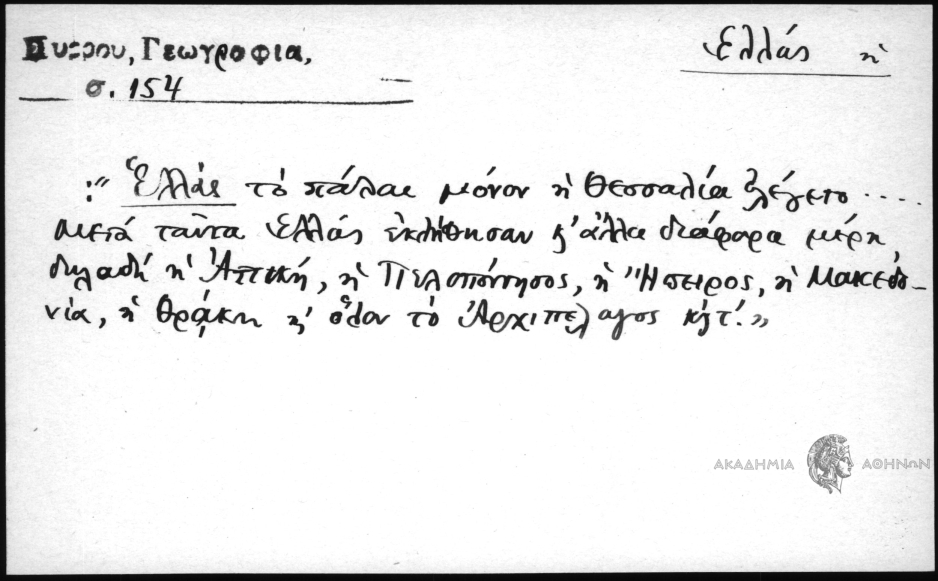 Πύρρου, Γεωγραφία,
Ἑλλάς ἡ
σ. 154
:" Ἑλλὰς τὸ πάλαι μόνον ἡ Θεσσαλία ἐλέγετο ....
μετὰ ταῦτα Ἑλλὰς ἐκλήθησαν κ' ἄλλα διάφορα μέρη,
δηλαδὴ ἡ Ἀττική, ἡ Πελοπόννησος, ἡ Ἤπειρος, ἡ Μακεδο-
νία, ἡ Θράκη κ' ὅλον τὸ Ἀρχιπέλαγος κ'τ.»
ΑΚΑΔΗΜΙΑ ΑΘΗΝΩΝ